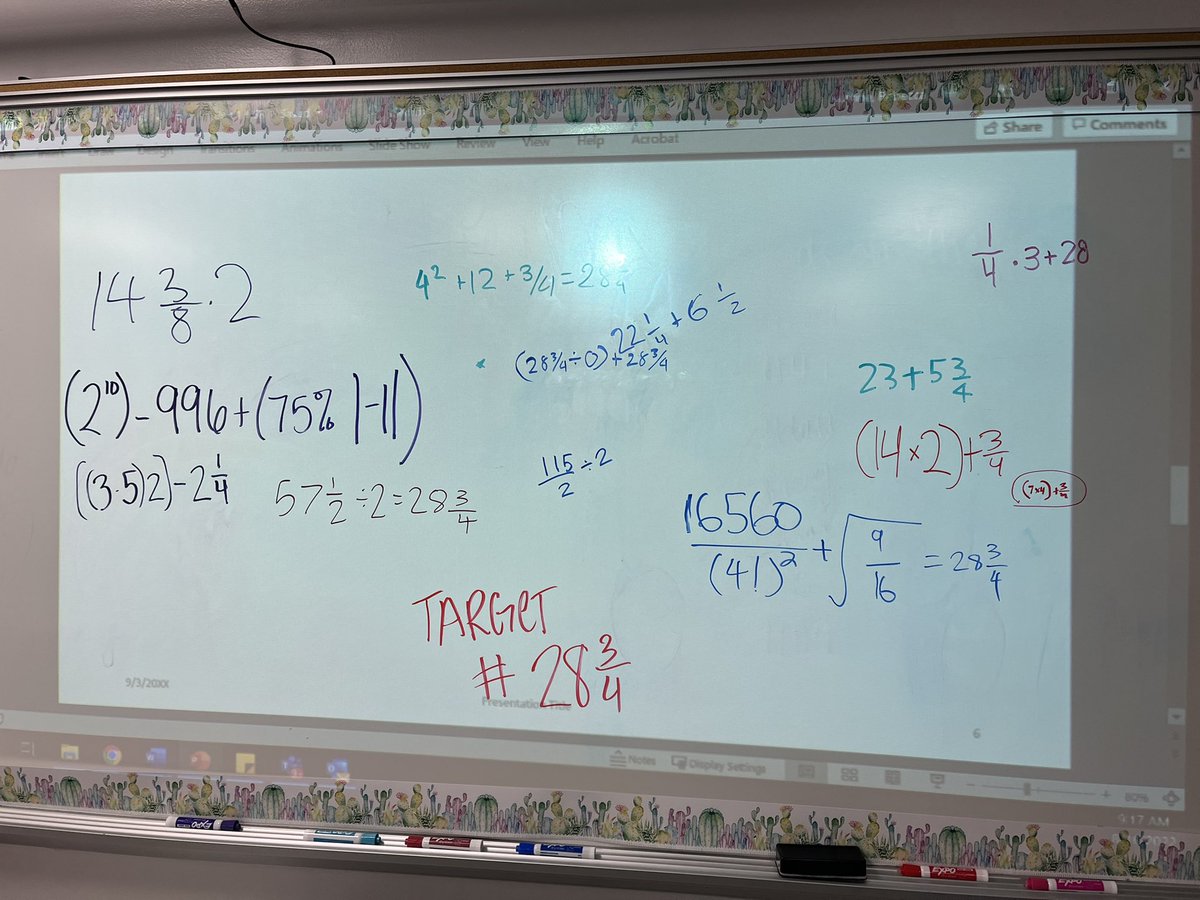 Share Comments
Design Transitions Animations Slide Show Review View Help Acrobat
1/4 · 3 + 28
4² + 12 + 3/4 = 28
14 3/8 · 2
22 1/4 + 6 1/2
(28 3/4 ÷ 0) + 28 3/4
23 + 5 3/4
(2¹⁰) - 996 + (75% |-1|)
(14 × 2) + 3/4
((3·5)2) - 2 1/4
115/2 ÷ 2
(7×4) + 3/4
57 1/2 ÷ 2 = 28 3/4
16560/(4!)² + √9/16 = 28 3/4
TARGET
# 28 3/4
9/3/20XX
Presentation Title
6
Notes Display Settings
80%
9:17 AM
EXPO
EXPO
EXPO